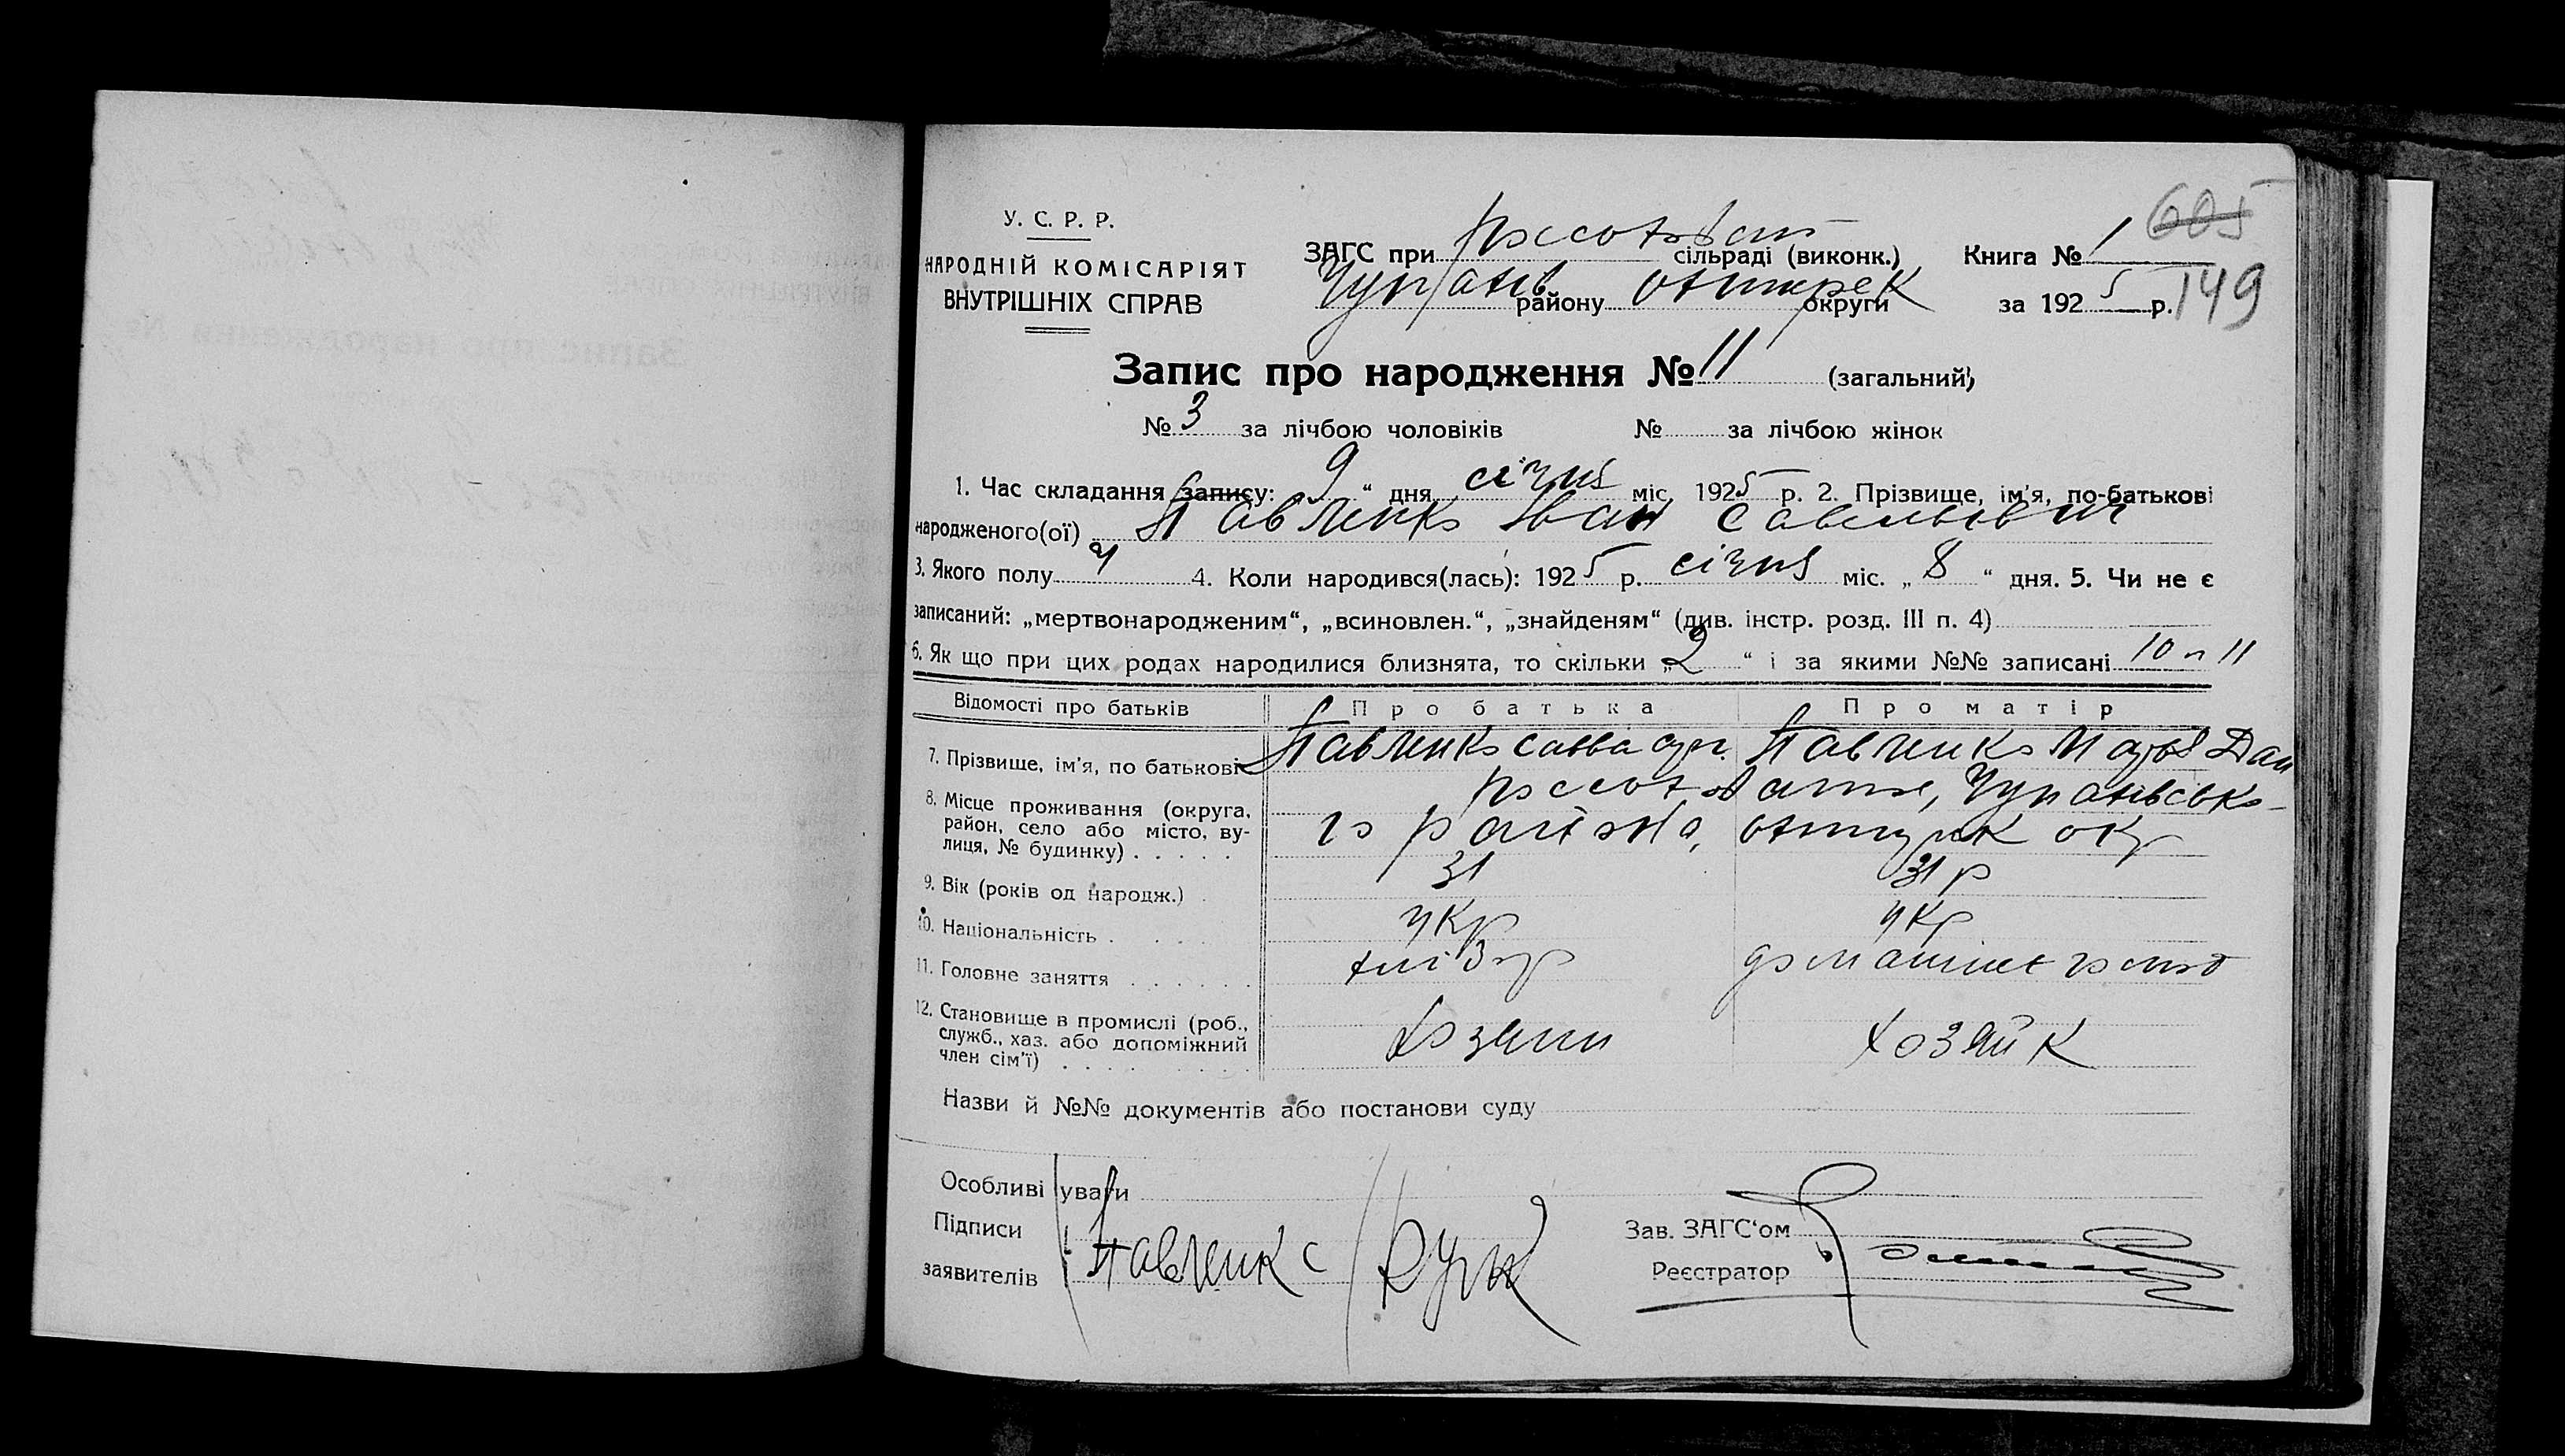 605
У. С. Р. Р.
НАРОДНІЙ КОМІСАРІЯТ
ВНУТРІШНІХ СПРАВ
ЗАГС при сільраді (виконк.)
району округи
Книга № 1
за 1925 р. 149
Запис про народження № 11 (загальний)
№ 3 за лічбою чоловіків № за лічбою жінок
1. Час складання запису: 9 “ дня січня міс. 1925 р. 2. Прізвище, ім'я, по-батькові
народженого(ої) Павленко Іван Савельович
3. Якого полу ч 4. Коли народився(лась): 1925 р. січня міс. „ 8 “ дня. 5. Чи не є
записаний: „мертвонародженим“, „всиновлен.“, „знайденям“ (див. інстр. розд. III п. 4)
6. Як що при цих родах народилися близнята, то скільки „2 “ і за якими №№ записані 10 и 11
Відомості про батьків Про батька Про матір
7. Прізвище, ім'я, по батькові Павленко Савва Павленко Марія Дан
8. Місце проживання (округа,
район, село або місто, ву-
лиця, № будинку) го району, окр
9. Вік (років од народж.) 31 31 р
10. Національність укр укр
11. Головне заняття хлібор домашнє госпо
12. Становище в промислі (роб.,
служб., хаз. або допоміжний
член сім'ї) хозяин хозяйк
Назви й №№ документів або постанови суду
Особливі уваги
Підписи
заявителів Павленко
Зав. ЗАГС‘ом
Реєстратор